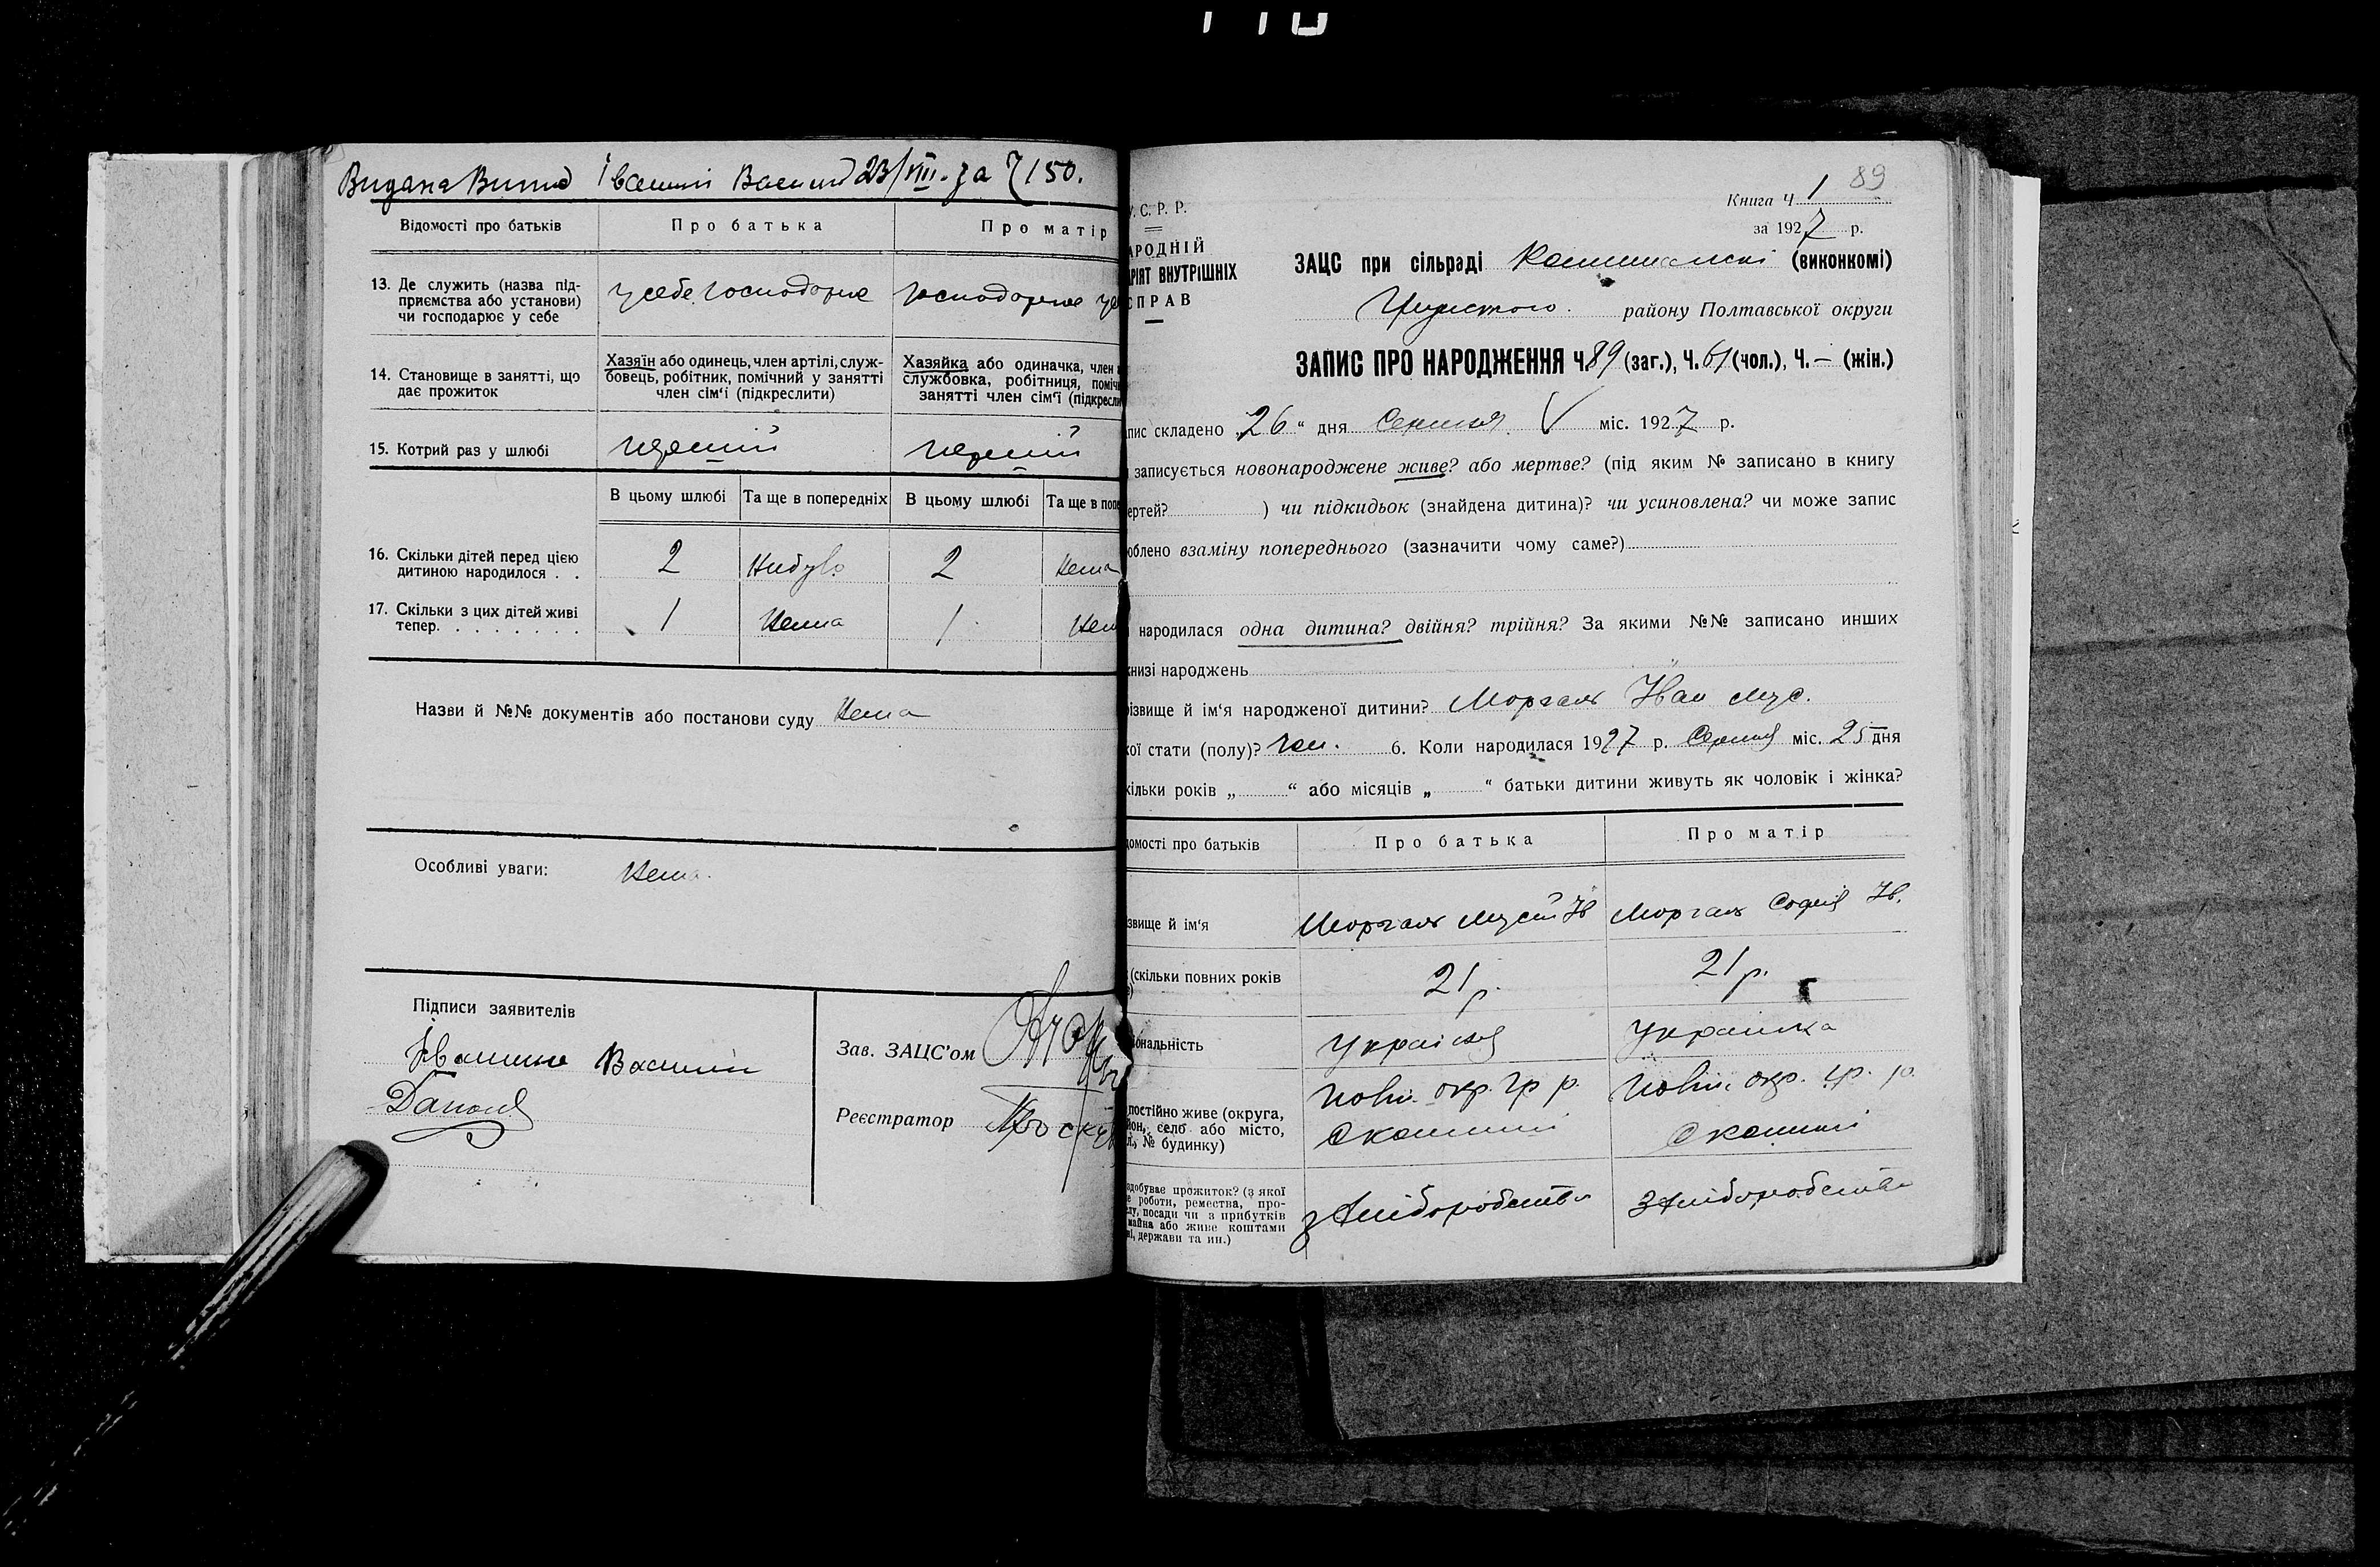 Видана Випис Івашині Василю 23/VIII. за 7/50.
Відомості про батьків
Про батька
Про матір
13. Де служить (назва під-
приємства або установи)
чи господарює у себе
у себе господарює
господарює
14. Становище в занятті, що
дає прожиток
Хазяїн або одинець, член артілі, служ-
бовець, робітник, помічний у занятті
член сім'ї (підкреслити)
Хазяйка або одиначка, член
службовка, робітниця, поміч
занятті член сім'ї (підкресли
15. Котрий раз у шлюбі
перший
перший
В цьому шлюбі
Та ще в попередніх
В цьому шлюбі
Та ще в попе
16. Скільки дітей перед цією
дитиною народилося . .
2
Небуло
2
Нема
17. Скільки з цих дітей живі
тепер. . . . . . . .
1
Нема
1
Нем
Назви й №№ документів або постанови суду Нема
Особливі уваги: Нема.
Підписи заявителів
Василь
Зав. ЗАЦС'ом
Реєстратор
89
Книга Ч 1
за 1927 р.
У. С. Р. Р.
АРОДНІЙ
АРІЯТ ВНУТРІШНІХ
СПРАВ
ЗАЦС при сільраді (виконкомі)
району Полтавської округи
ЗАПИС ПРО НАРОДЖЕННЯ Ч. 89 (заг.), Ч. 61 (чол.), Ч. — (жін.)
пис складено „26“ дня Серпня V міс. 1927 р.
записується новонароджене живе? або мертве? (під яким № записано в книгу
ертей? ) чи підкидьок (знайдена дитина)? чи усиновлена? чи може запис
облено взаміну попереднього (зазначити чому саме?)
народилася одна дитина? двійня? трійня? За якими №№ записано инших
книзі народжень
різвище й ім'я народженої дитини? Моргаль Іван Мус.
кої стати (полу)? чол. 6. Коли народилася 1927 р. Серпня міс. 25 дня
кільки років „ “ або місяців „ “ батьки дитини живуть як чоловік і жінка?
домості про батьків
Про батька
Про матір
звище й ім'я
Моргаль Мусій Ів
Моргаль Софія Ів.
(скільки повних років
21 р.
21 р.
іональність
Українка
постійно живе (округа,
йон, село або місто,
л., № будинку)
Полт. окр. гр р.
Полт. окр. гр. р.
здобуває прожиток? (з якої
е роботи, ремества, про-
слу, посади чи з прибутків
майна або живе коштами
ні, держави та ин.)
з хліборобства
З хліборобства